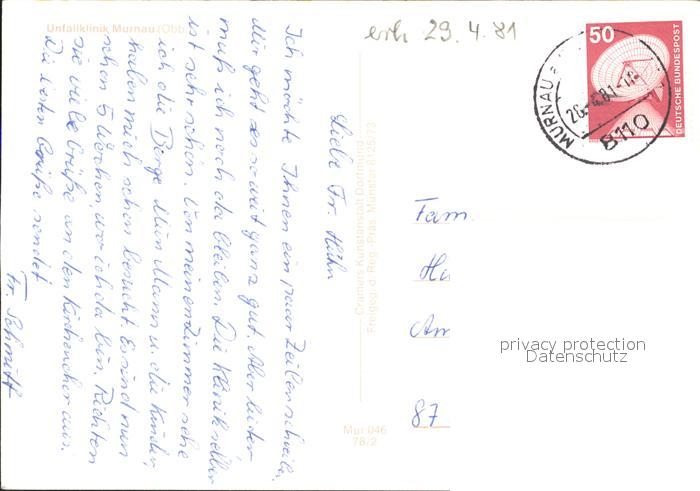 Unfallklinik Murnau/Obb.
erh 29.4.81
50
DEUTSCHE BUNDESPOST
MURNAU
26.-4.81-18
8110
Liebe Fr. Hühn
Ich möchte Ihnen ein paar Zeilen schreiben.
Mir geht es soweit ganz gut. Aber leider
muß ich noch da bleiben. Die Klinik selber
ist sehr schön. Von meinem Zimmer sehe
ich die Berge. Mein Mann u. die Kinder,
haben mich schon besucht. Es sind nun
schon 5 Wochen, wo ich da bin. Richten
sie viele Grüße an den Kirchenchor aus.
Die besten Grüße sendet
Fr. Schmitt
Cramers Kunstanstalt Dortmund
Freigeg. d. Reg.-Präs. Münster 6125/73
Mur 046
78/2
Fam.
Hü
Am
87
privacy protection
Datenschutz